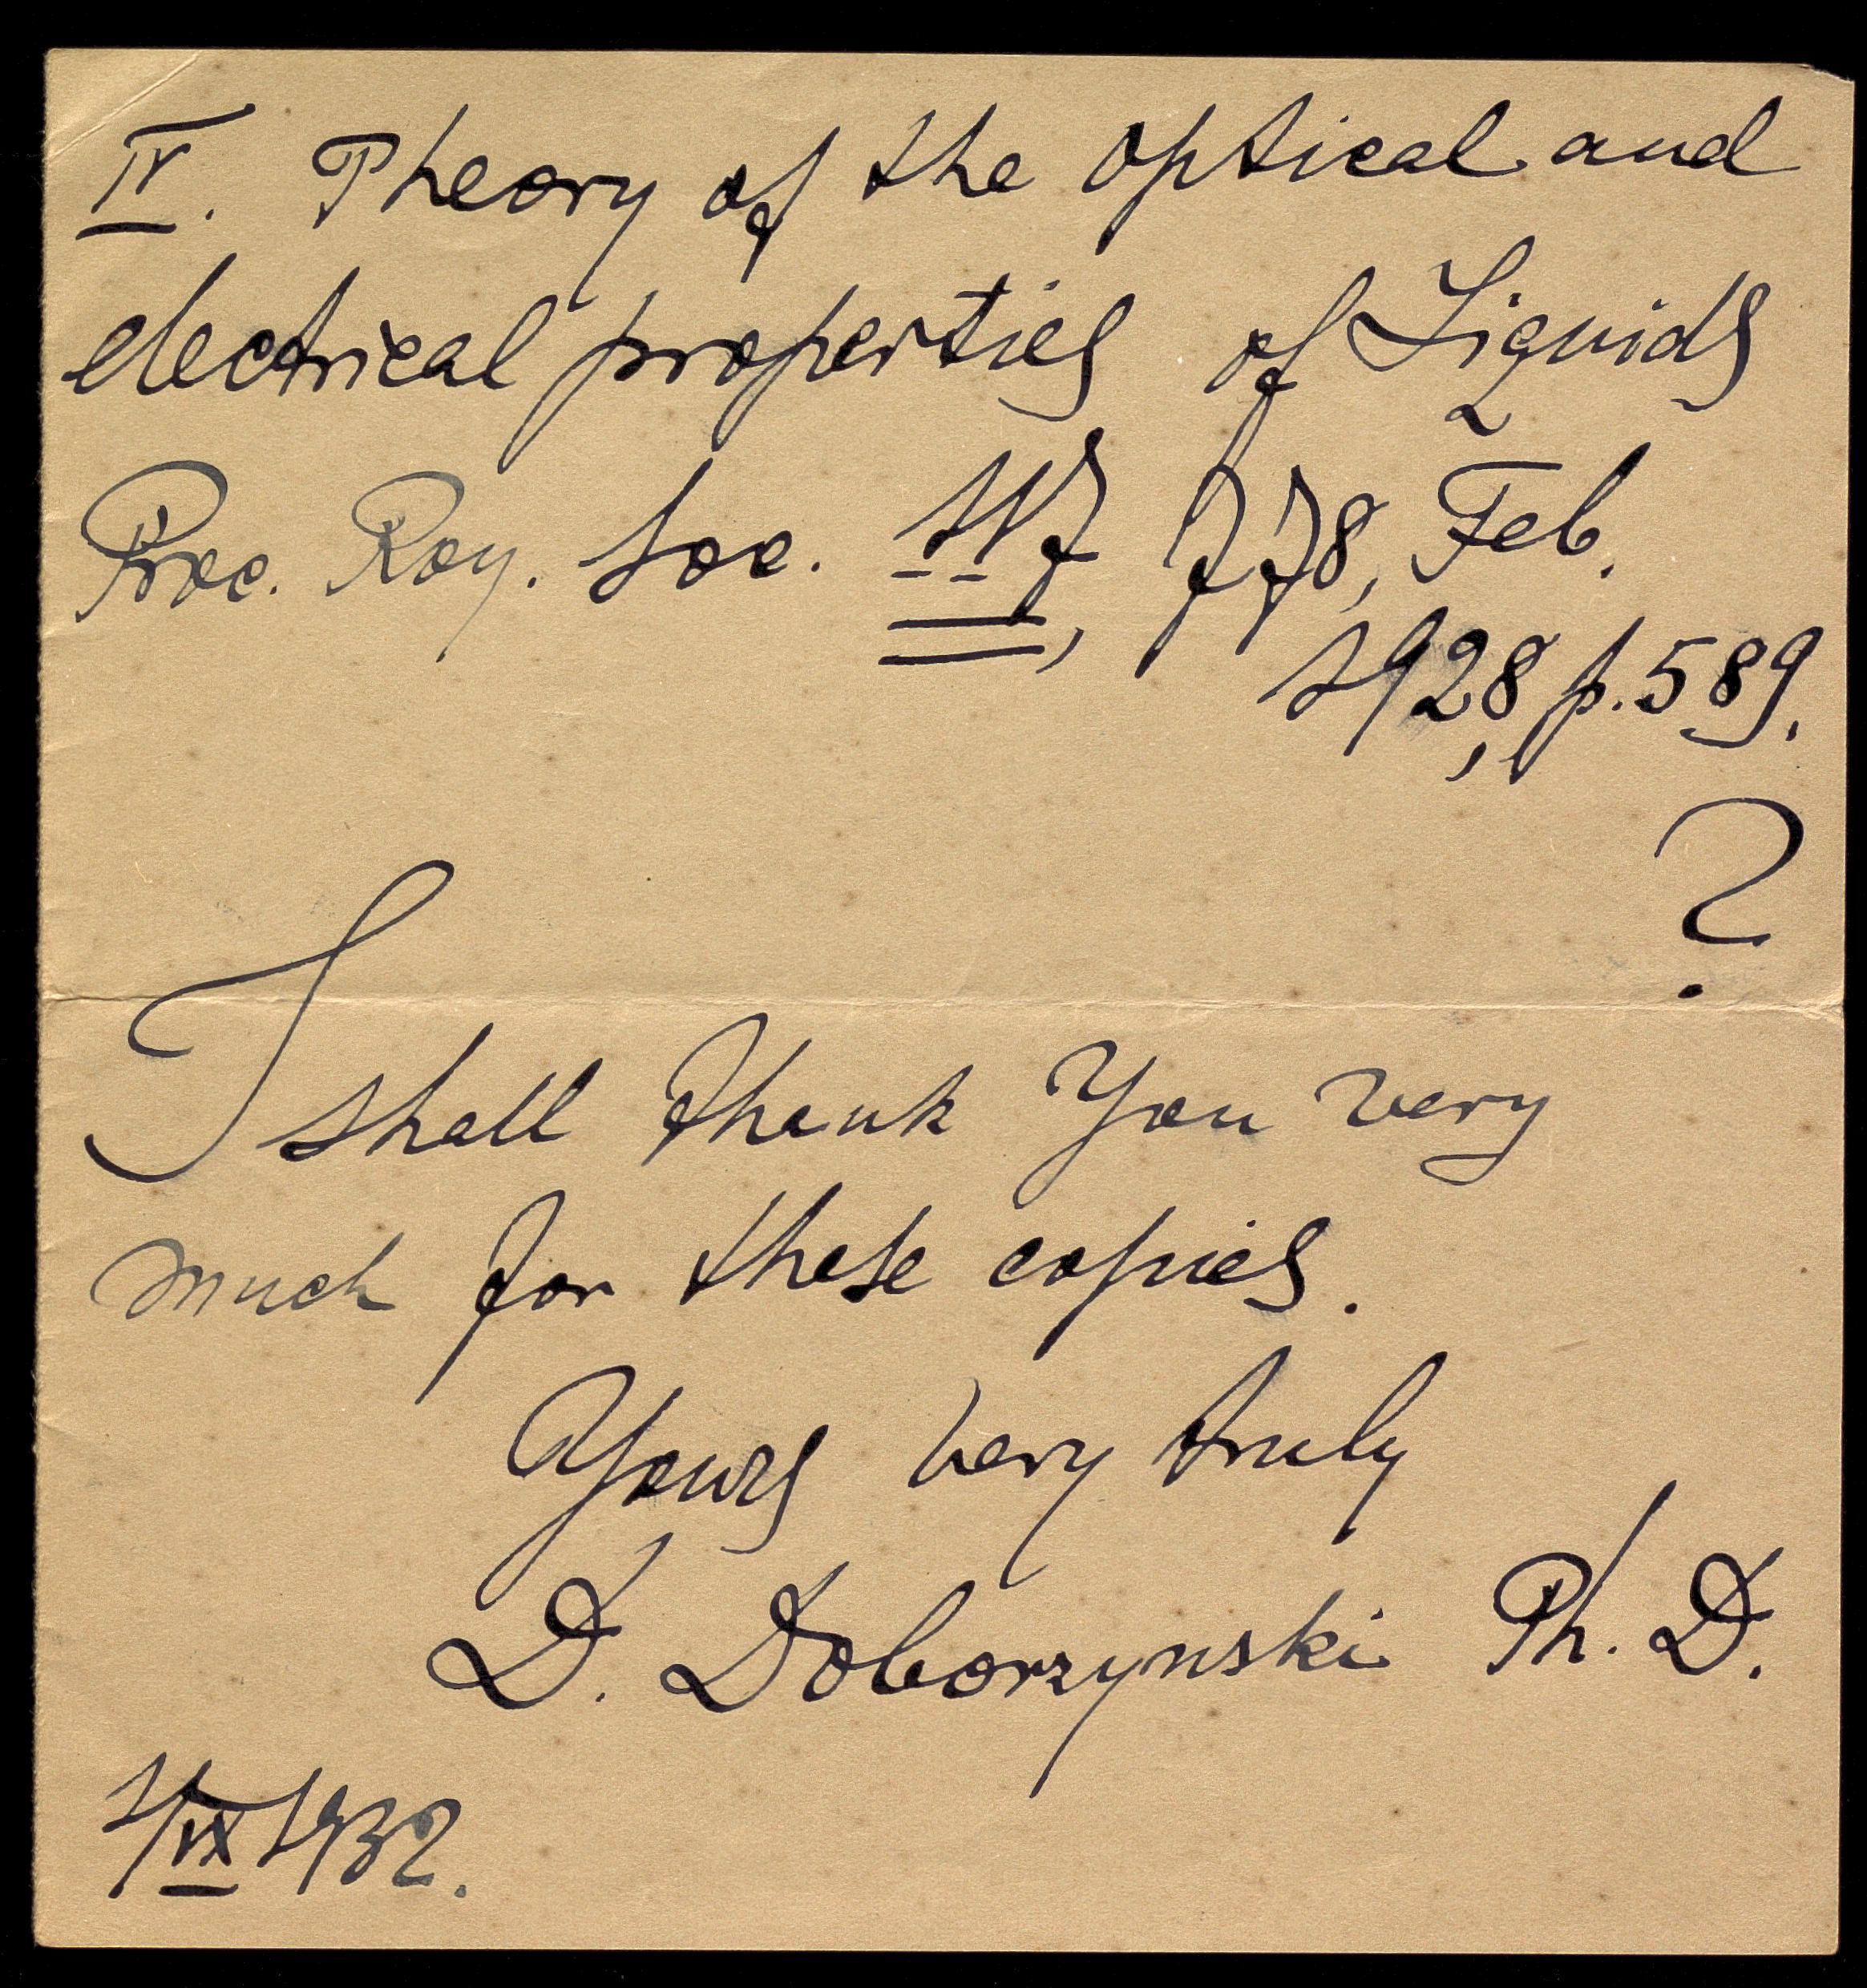 IV. Theory of the optical and
electrical properties of Liquids
Proc. Roy. Soc. 117, 778, Feb.
1928, p. 589.
?
I shall thank You very
much for these copies.
Yours very truly
D. Doborzynski Ph. D.
1/IX 1932.